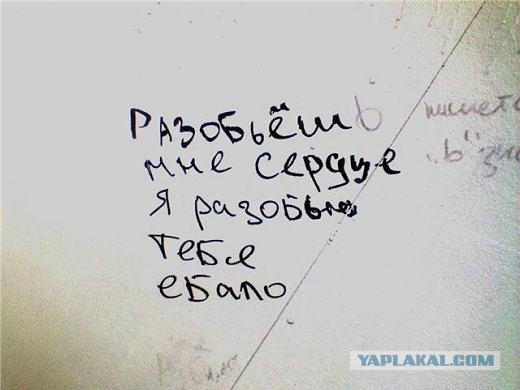 Разобьёшь
мне сердце
я разобью
тебе
ебало
пишется
"ь"
YAPLAKAL.COM